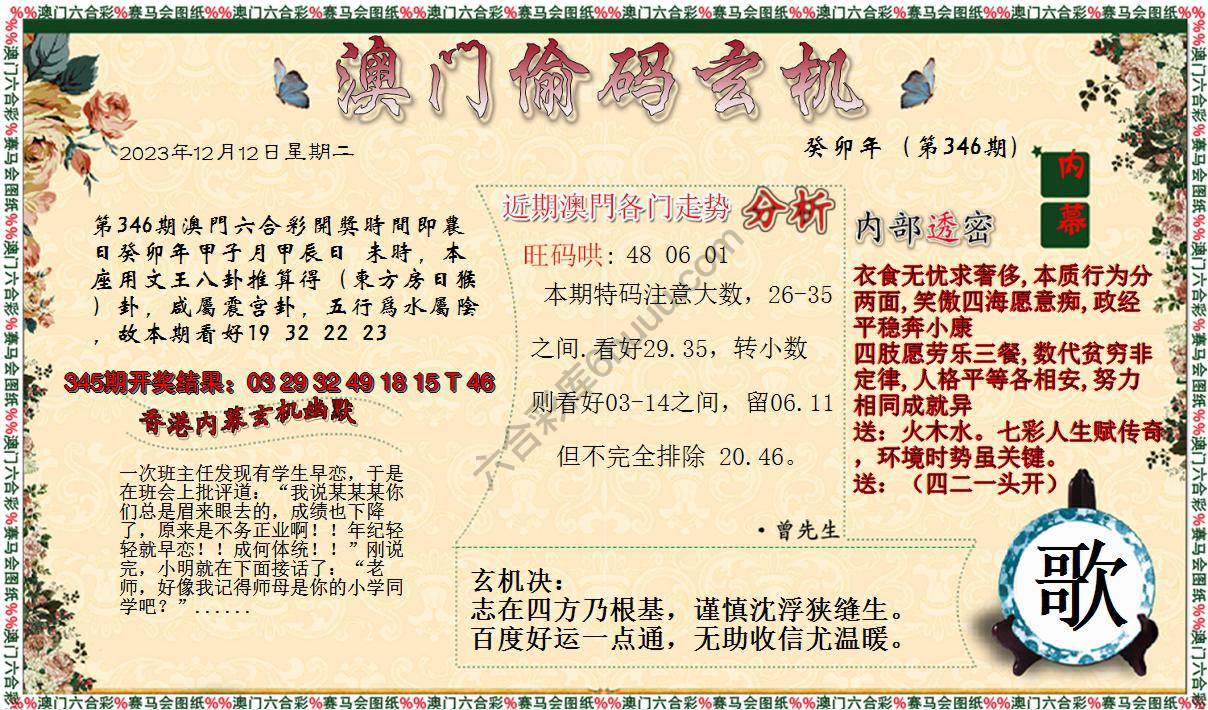 %%澳门六合彩%赛马会图纸%%澳门六合彩%赛马会图纸%%澳门六合彩%赛马会图纸%%澳门六合彩%赛马会图纸%%澳门六合彩%赛马会图纸%%澳门六合彩%赛马会图纸%%
澳门偷码玄机
2023年12月12日星期二
癸卯年（第346期）
第346期澳門六合彩開獎時間即農
日癸卯年甲子月甲辰日 未時，本
座用文王八卦推算得（東方房日猴
）卦，咸屬震宫卦，五行爲水屬陰
，故本期看好19 32 22 23
345期开奖结果：03 29 32 49 18 15 T 46
香港内幕玄机幽默
一次班主任发现有学生早恋，于是
在班会上批评道：“我说某某某你
们总是眉来眼去的，成绩也下降
了，原来是不务正业啊！！年纪轻
轻就早恋！！成何体统！！”刚说
完，小明就在下面接话了：“老
师，好像我记得师母是你的小学同
学吧？”......
近期澳門各门走势 分析
旺码哄: 48 06 01
本期特码注意大数，26-35
之间.看好29.35，转小数
则看好03-14之间，留06.11
但不完全排除 20.46。
·曾先生
内部透密
内
幕
衣食无忧求奢侈,本质行为分
两面,笑傲四海愿意痴,政经
平稳奔小康
四肢愿劳乐三餐,数代贫穷非
定律,人格平等各相安,努力
相同成就异
送：火木水。七彩人生赋传奇
，环境时势虽关键。
送：（四二一头开）
玄机决：
志在四方乃根基，谨慎沈浮狭缝生。
百度好运一点通，无助收信尤温暖。
歌